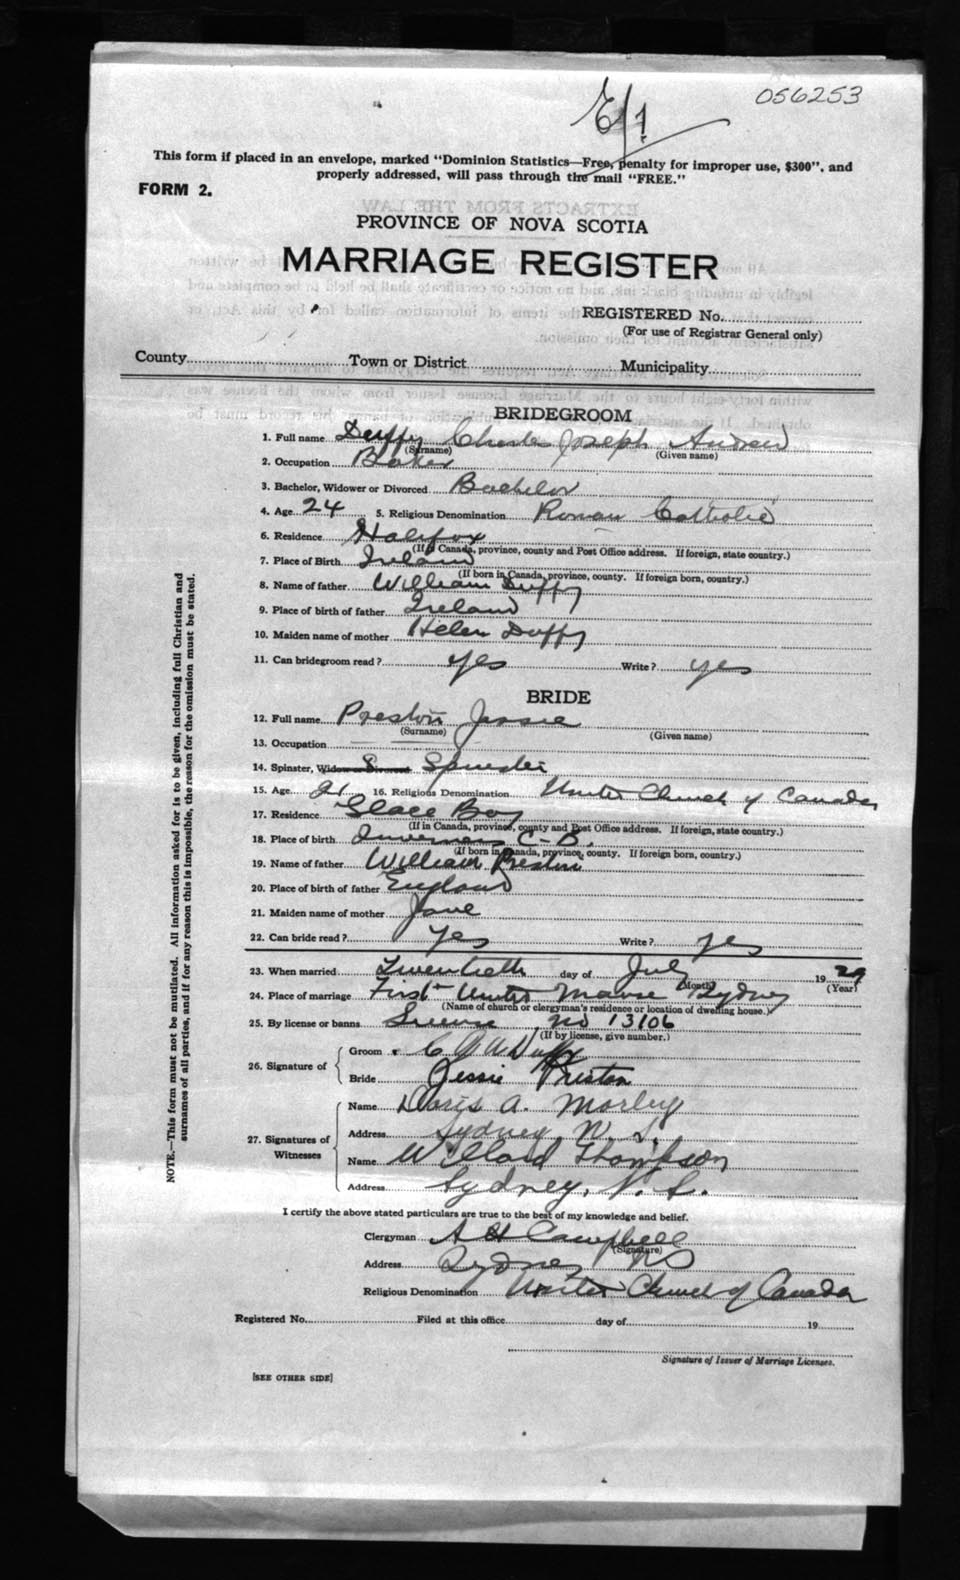 056253
E/1
This form if placed in an envelope, marked "Dominion Statistics—Free, penalty for improper use, $300", and
properly addressed, will pass through the mail "FREE."
FORM 2.
PROVINCE OF NOVA SCOTIA
MARRIAGE REGISTER
REGISTERED No.
(For use of Registrar General only)
County Town or District Municipality
BRIDEGROOM
1. Full name Duffy Charles Joseph Andrew
(Surname) (Given name)
2. Occupation Baker
3. Bachelor, Widower or Divorced Bachelor
4. Age 24 5. Religious Denomination Roman Catholic
6. Residence Halifax
(If in Canada, province, county and Post Office address. If foreign, state country.)
7. Place of Birth Ireland
(If born in Canada, province, county. If foreign born, country.)
8. Name of father William Duffy
9. Place of birth of father Ireland
10. Maiden name of mother Helen Duffy
11. Can bridegroom read? yes Write? yes
BRIDE
12. Full name Preston Jessie
(Surname) (Given name)
13. Occupation
14. Spinster, Widow or Divorced S Spinster
15. Age 21 16. Religious Denomination United Church of Canada
17. Residence Glace Bay
(If in Canada, province, county and Post Office address. If foreign, state country.)
18. Place of birth Inverness C.B.
(If born in Canada, province, county. If foreign born, country.)
19. Name of father William Preston
20. Place of birth of father England
21. Maiden name of mother Jane
22. Can bride read? Yes Write? yes
23. When married Twentieth day of July 1929
(Month) (Year)
24. Place of marriage First United Manse Sydney
(Name of church or clergyman's residence or location of dwelling house.)
25. By license or banns License no 13106
(If by license, give number.)
26. Signature of Groom C J A Duffy
Bride Jessie Preston
27. Signatures of Witnesses Name Doris A. Morley
Address Sydney N.S.
Name Willard Thompson
Address Sydney, N.S.
I certify the above stated particulars are true to the best of my knowledge and belief.
Clergyman A H Campbell
(Signature)
Address Sydney NS
Religious Denomination United Church of Canada
Registered No. Filed at this office day of 19
Signature of Issuer of Marriage Licenses.
[SEE OTHER SIDE]
NOTE.—This form must not be mutilated. All information asked for is to be given, including full Christian and
surnames of all parties, and if for any reason this is impossible, the reason for the omission must be stated.